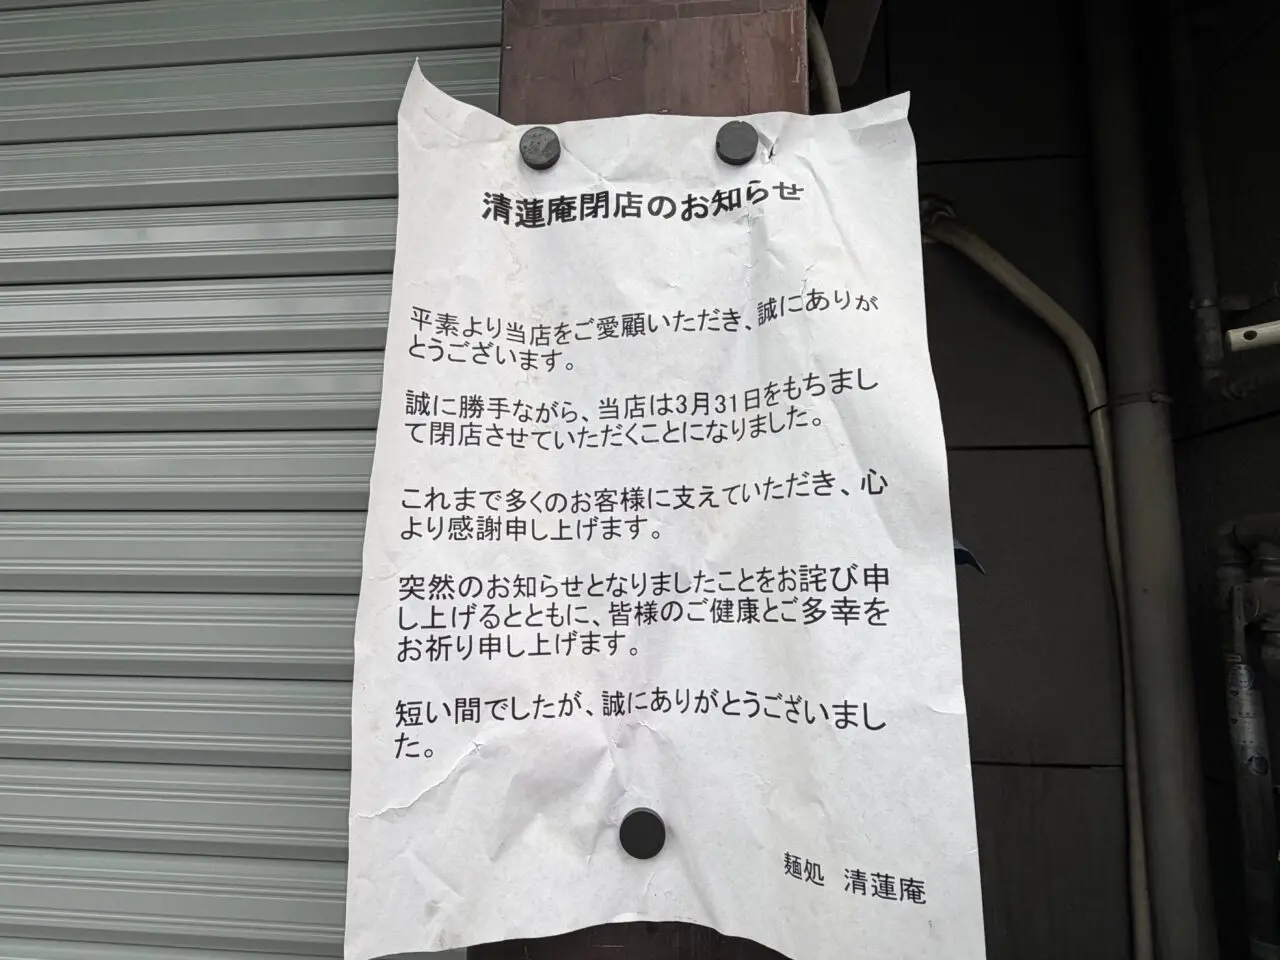 清蓮庵閉店のお知らせ
平素より当店をご愛顧いただき、誠にありが
とうございます。
誠に勝手ながら、当店は3月31日をもちまし
て閉店させていただくことになりました。
これまで多くのお客様に支えていただき、心
より感謝申し上げます。
突然のお知らせとなりましたことをお詫び申
し上げるとともに、皆様のご健康とご多幸を
お祈り申し上げます。
短い間でしたが、誠にありがとうございまし
た。
麺処 清蓮庵